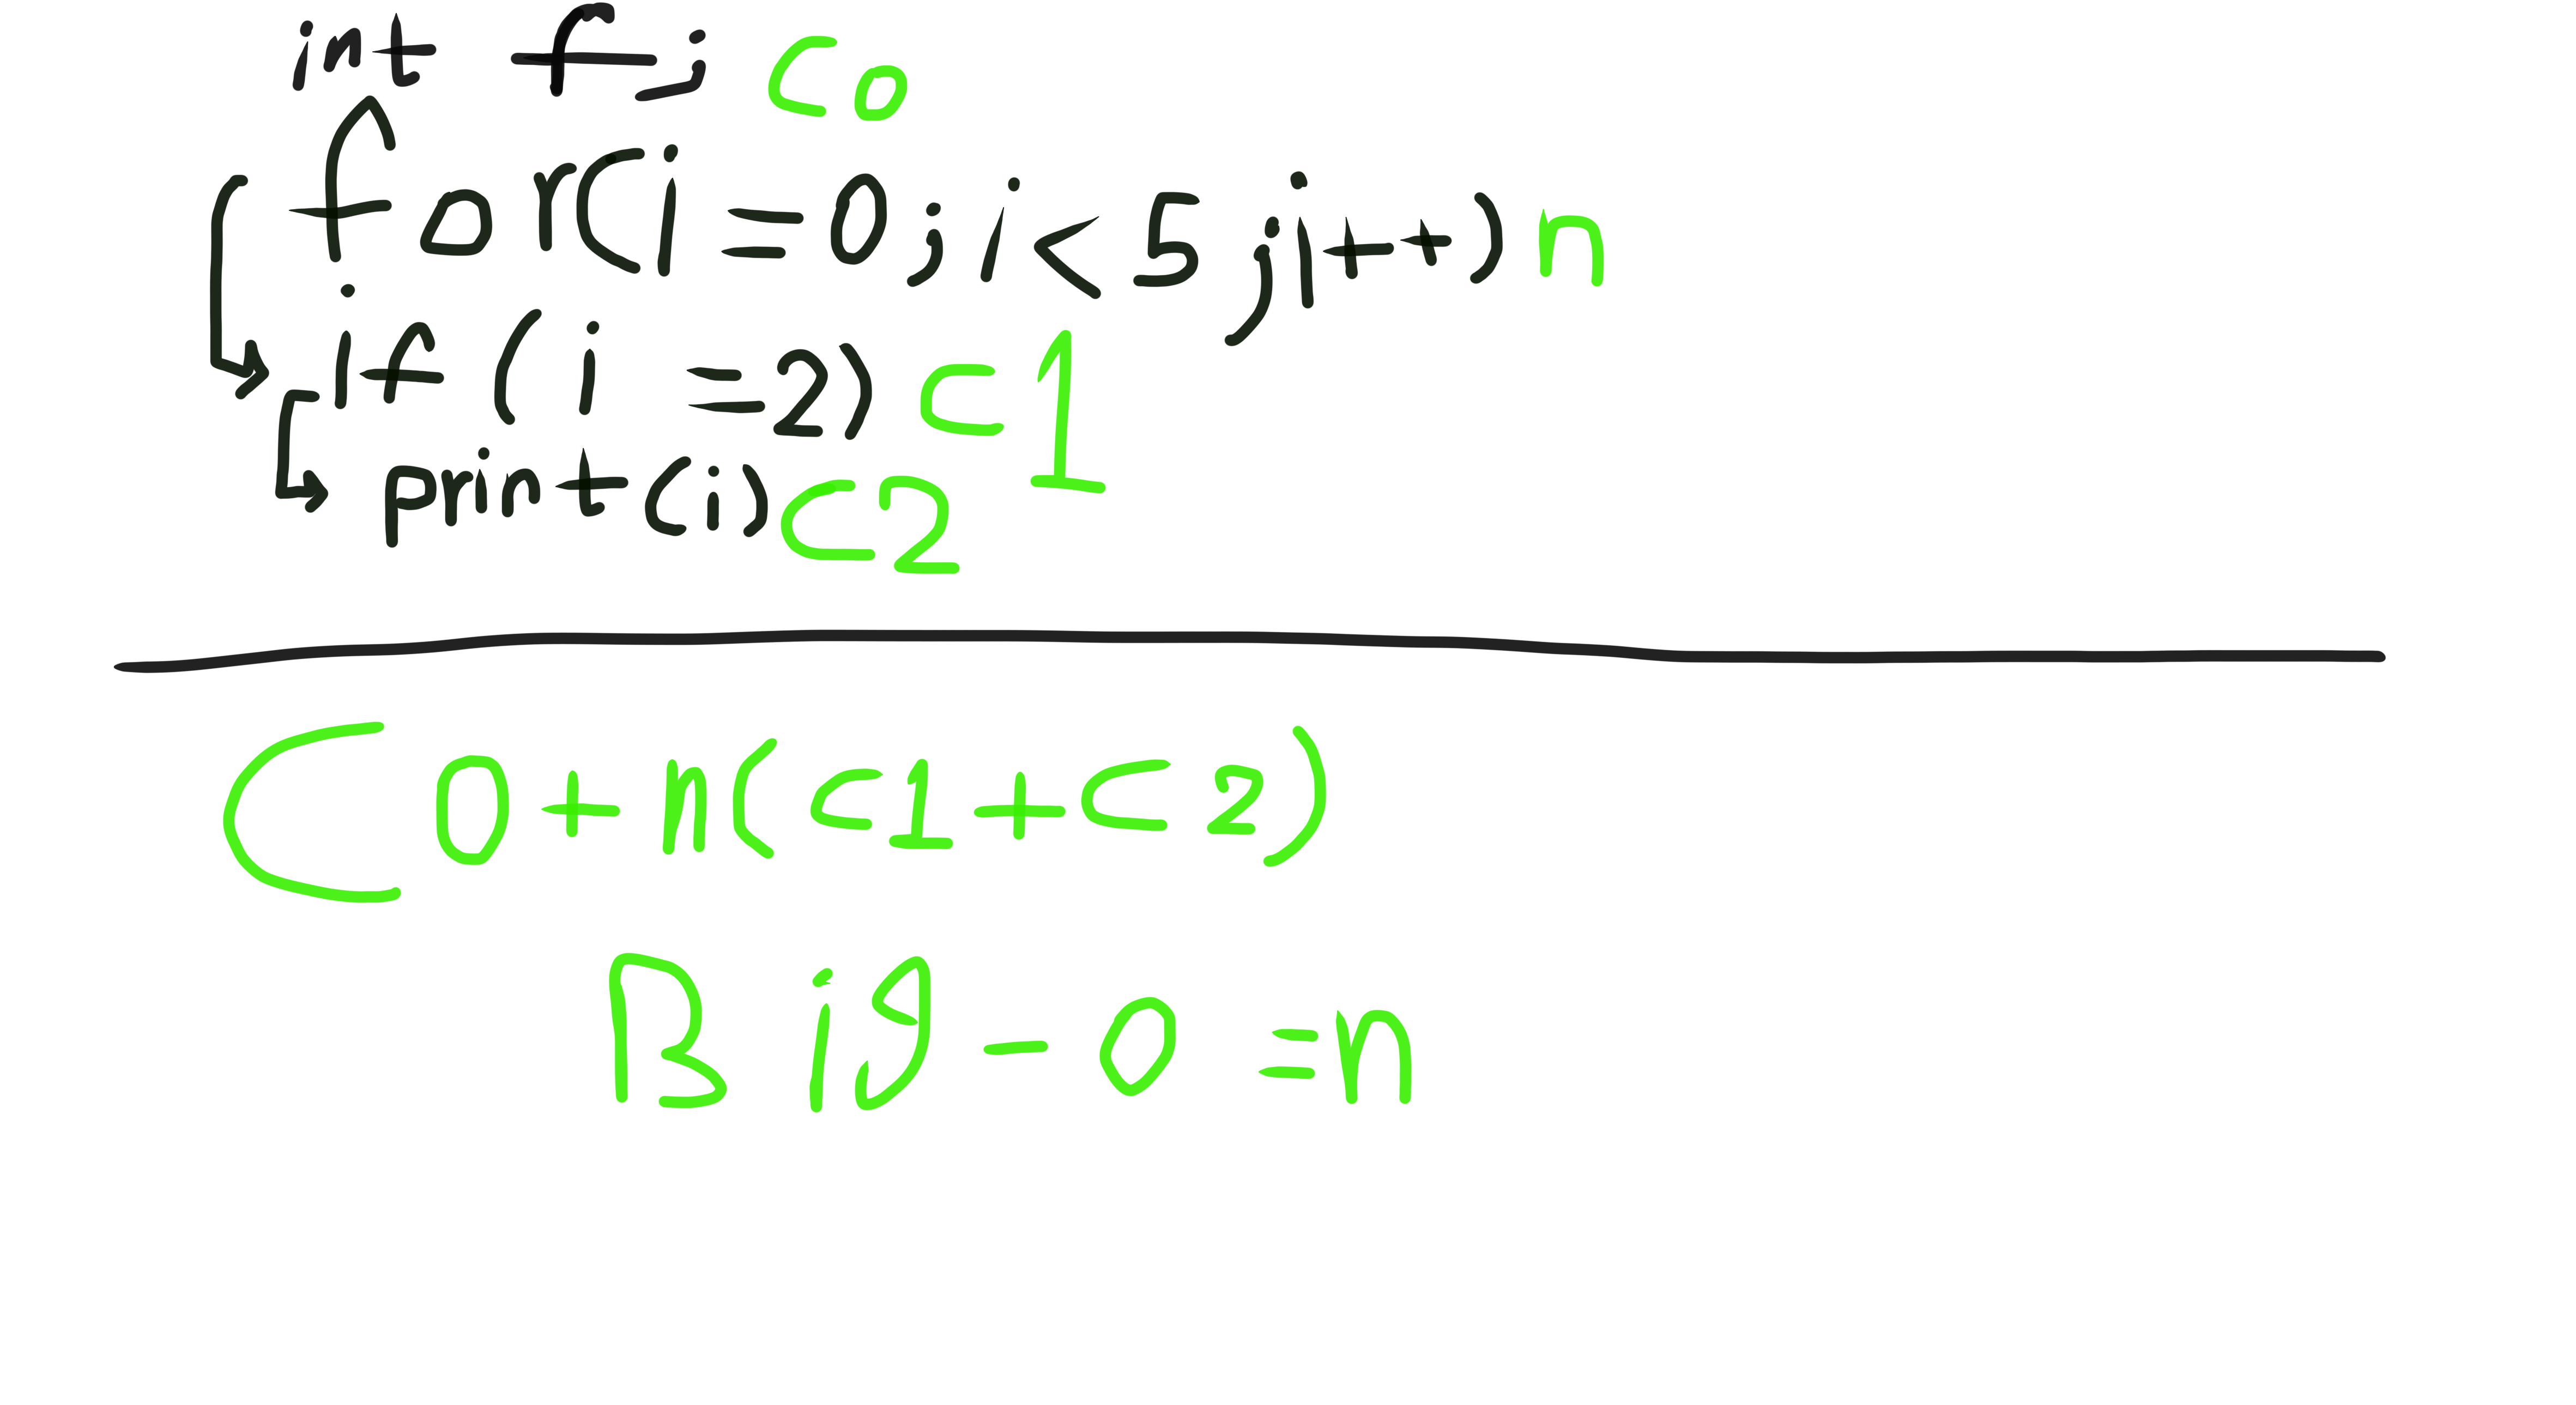 int f; C0
for(i=0; i<5; i++) n
if (i =2) C1
print(i) C2
C0+n(C1+C2)
Big-O =n